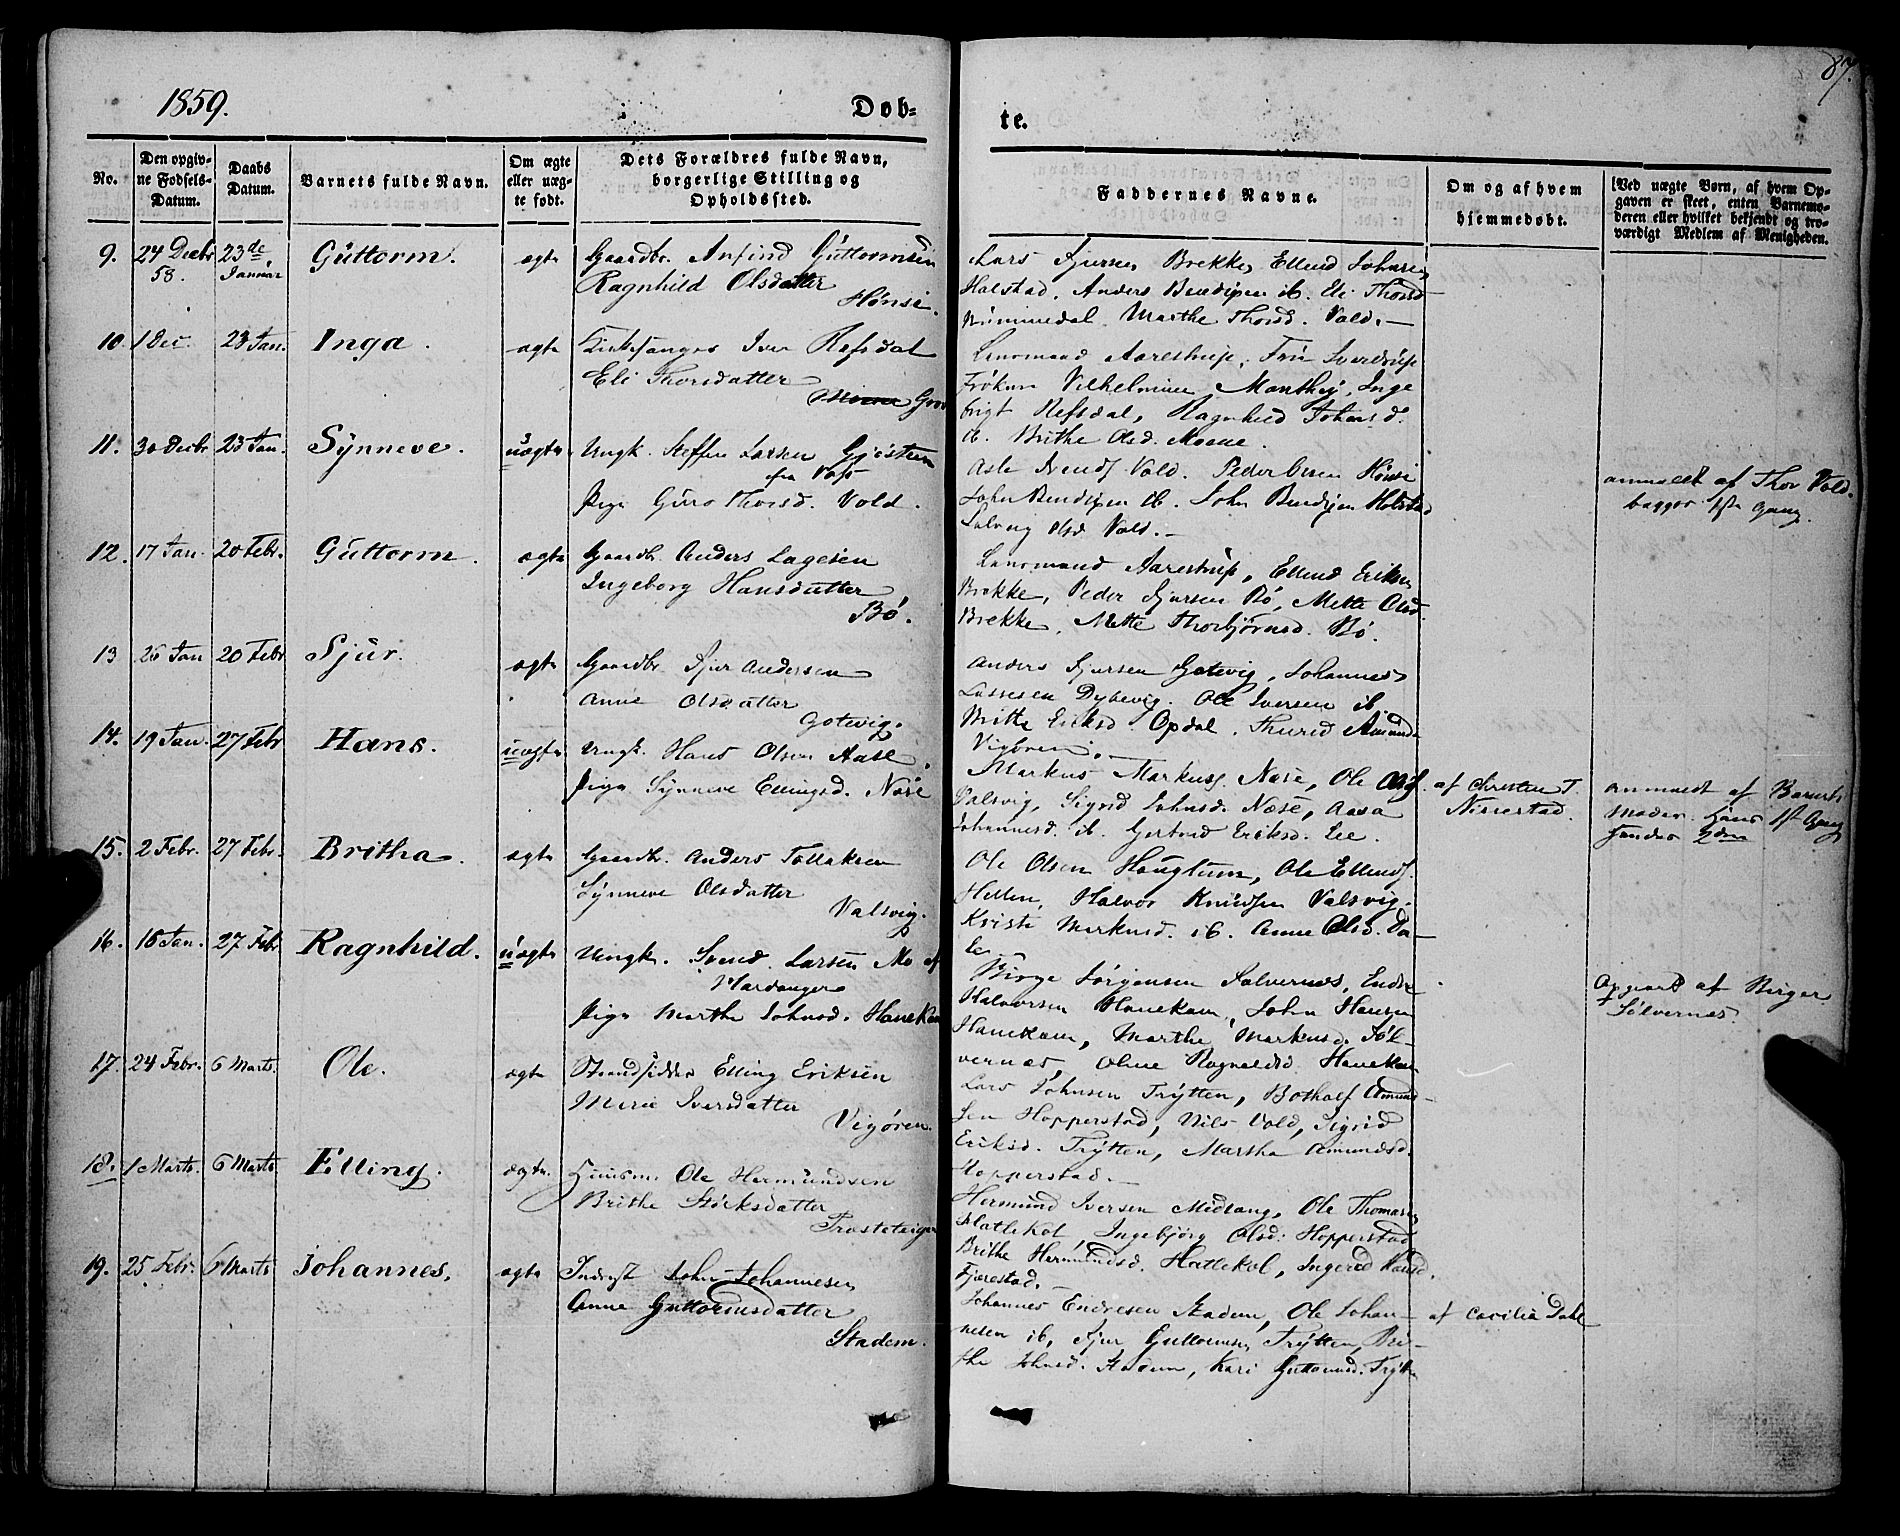 1859.
Døb-
te.
87.
No.
Den opgiv-
ne Fødsels-
Datum.
Daabs
Datum.
Barnets fulde Navn.
Om ægte
eller uæg-
te født.
Dets Forældres fulde Navn,
borgerlige Stilling og
Opholdssted.
Faddernes Navne.
Om og af hvem
hjemmedøbt.
Ved uægte Børn, af hvem Op-
gaven er skeet, enten Barnemo-
deren eller hvilket bekjendt og tro-
værdigt Medlem af Menigheden.
9. 24 Decbr 58. 23de Januar Guttorm. ægte
Gaardbr. Anfind Guttormsen
Ragnhild Olsdatter
Hønsi.
Lars Sjursen Brekke, Ellend Johnsen
Halstad, Anders Bendixen ib. Eli Thorsd
Nummedal. Marthe Thorsd. Vold.
10. 1 Dec. 23 Jan. Inga. ægte
Kirkesanger Iver Refsdal
Eli Thorsdatter
Lensmand Aarestrup, Fru Sverdrup
Frøken Vilhelmine Manthey, Inge
brigt Refsdal, Ragnhild Johnsd.
ib. Brithe Olsd. Moene.
11. 30 Decbr 23 Jan. Synneve. uægte
Ungk. Steffen Larsen Gjøstein
fra Voss
Pige Guro Thorsd. Vold.
Asle Svends Vold. Peder Hønsi
John Bendixen ib. John Bendixen Holstad
Solveig Olsd Vold.
anmeldt af Thor Vold.
begges 1ste Gang.
12. 17 Jan. 20 Febr. Guttorm. ægte
Gaardbr. Anders Lagesen
Ingeborg Hansdatter
Bø.
Lensmand Aarestrup, Ellend Eriksen
Brekke, Peder Sjursen Bø, Mette Olsd.
Brekke, Mette Thorbjørnsd. Bø.
13 26 Jan 20 Febr Sjur. ægte
Gaardbr. Sjur Andersen
Anne Olsdatter
Gotevig.
Anders Sjursen Gotevig, Johannes
Lassesen Dybevig. Ole Iversen ib.
Britte Eriksd. Opdal, Thurid Amunds
Vigøren.
14. 19 Jan. 27 Febr Hans. uægte
Ungk. Hans Olsen Aase.
Pige Synneve Ellingsd. Nøse
Markus Markuss. Nøse, Ole Olss.
Valsvig, Sigrid Johnsd. Næse, Aasa
Johannesd. ib. Gertrud Eriksd. Lee.
af Christen T.
anmeldt af Barnets
Moder. Hans 1ste Gang
hendes 2den
15. 2 Febr. 27 Febr. Britha. ægte
Gaardbr. Anders Tollaksen
Synneve Olsdatter
Valsvig.
Ole Olsen Haugtum, Ole Ellends.
Hellen, Halvor Knudsen Valsvig.
Kristi Markusd. ib. Anne Olsd. Da-
le
16. 18 Jan. 27 Febr Ragnhild. uægte
Ungk. Svend Larsen Mo af
Hardanger
Pige Marthe Johnsd. Hanekam
Birge Jørgensen Solvernes, Endre
Halvorsen Hanekam, John Hansen
Hanekam, Marthe Markusd. Søl-
vernes, Oline Ragnaldsd Hanekam
Opgivet af Birger
Sølvernes.
17. 24 Febr. 6 Marts. Ole. ægte
Strandsidder Elling Eriksen
Marie Iversdatter
Vigøren.
Lars Johnsen Trÿtten, Botholf Amund-
sen Hopperstad, Nils Vold, Sigrid
Eriksd. Trÿtten, Martha Amundsd.
Hopperstad.
18. 1 Marts. 6 Marts Elling. ægte.
Huusm. Ole Hermundsen
Brithe Størksdatter
Trosteteigen
Hermund Iversen Midlang, Ole Thomasen
Hatlekol, Ingebjørg Olsd. Hopperstad
Brithe Hermundsd. Hatlekol, Ingerid
Fjærestad.
19. 25 Febr. 6 Marts Johannes. ægte
Inderst John Johannesen
Anne Guttormsdatter
Stadem.
Johannes Endresen Stadem, Ole Johan-
nesen ib, Sjur Guttormsen Trÿtten, Bri-
the Johnsd. Stadem, Kari Guttormsd. Trÿtten
af Cæcilia Dahl